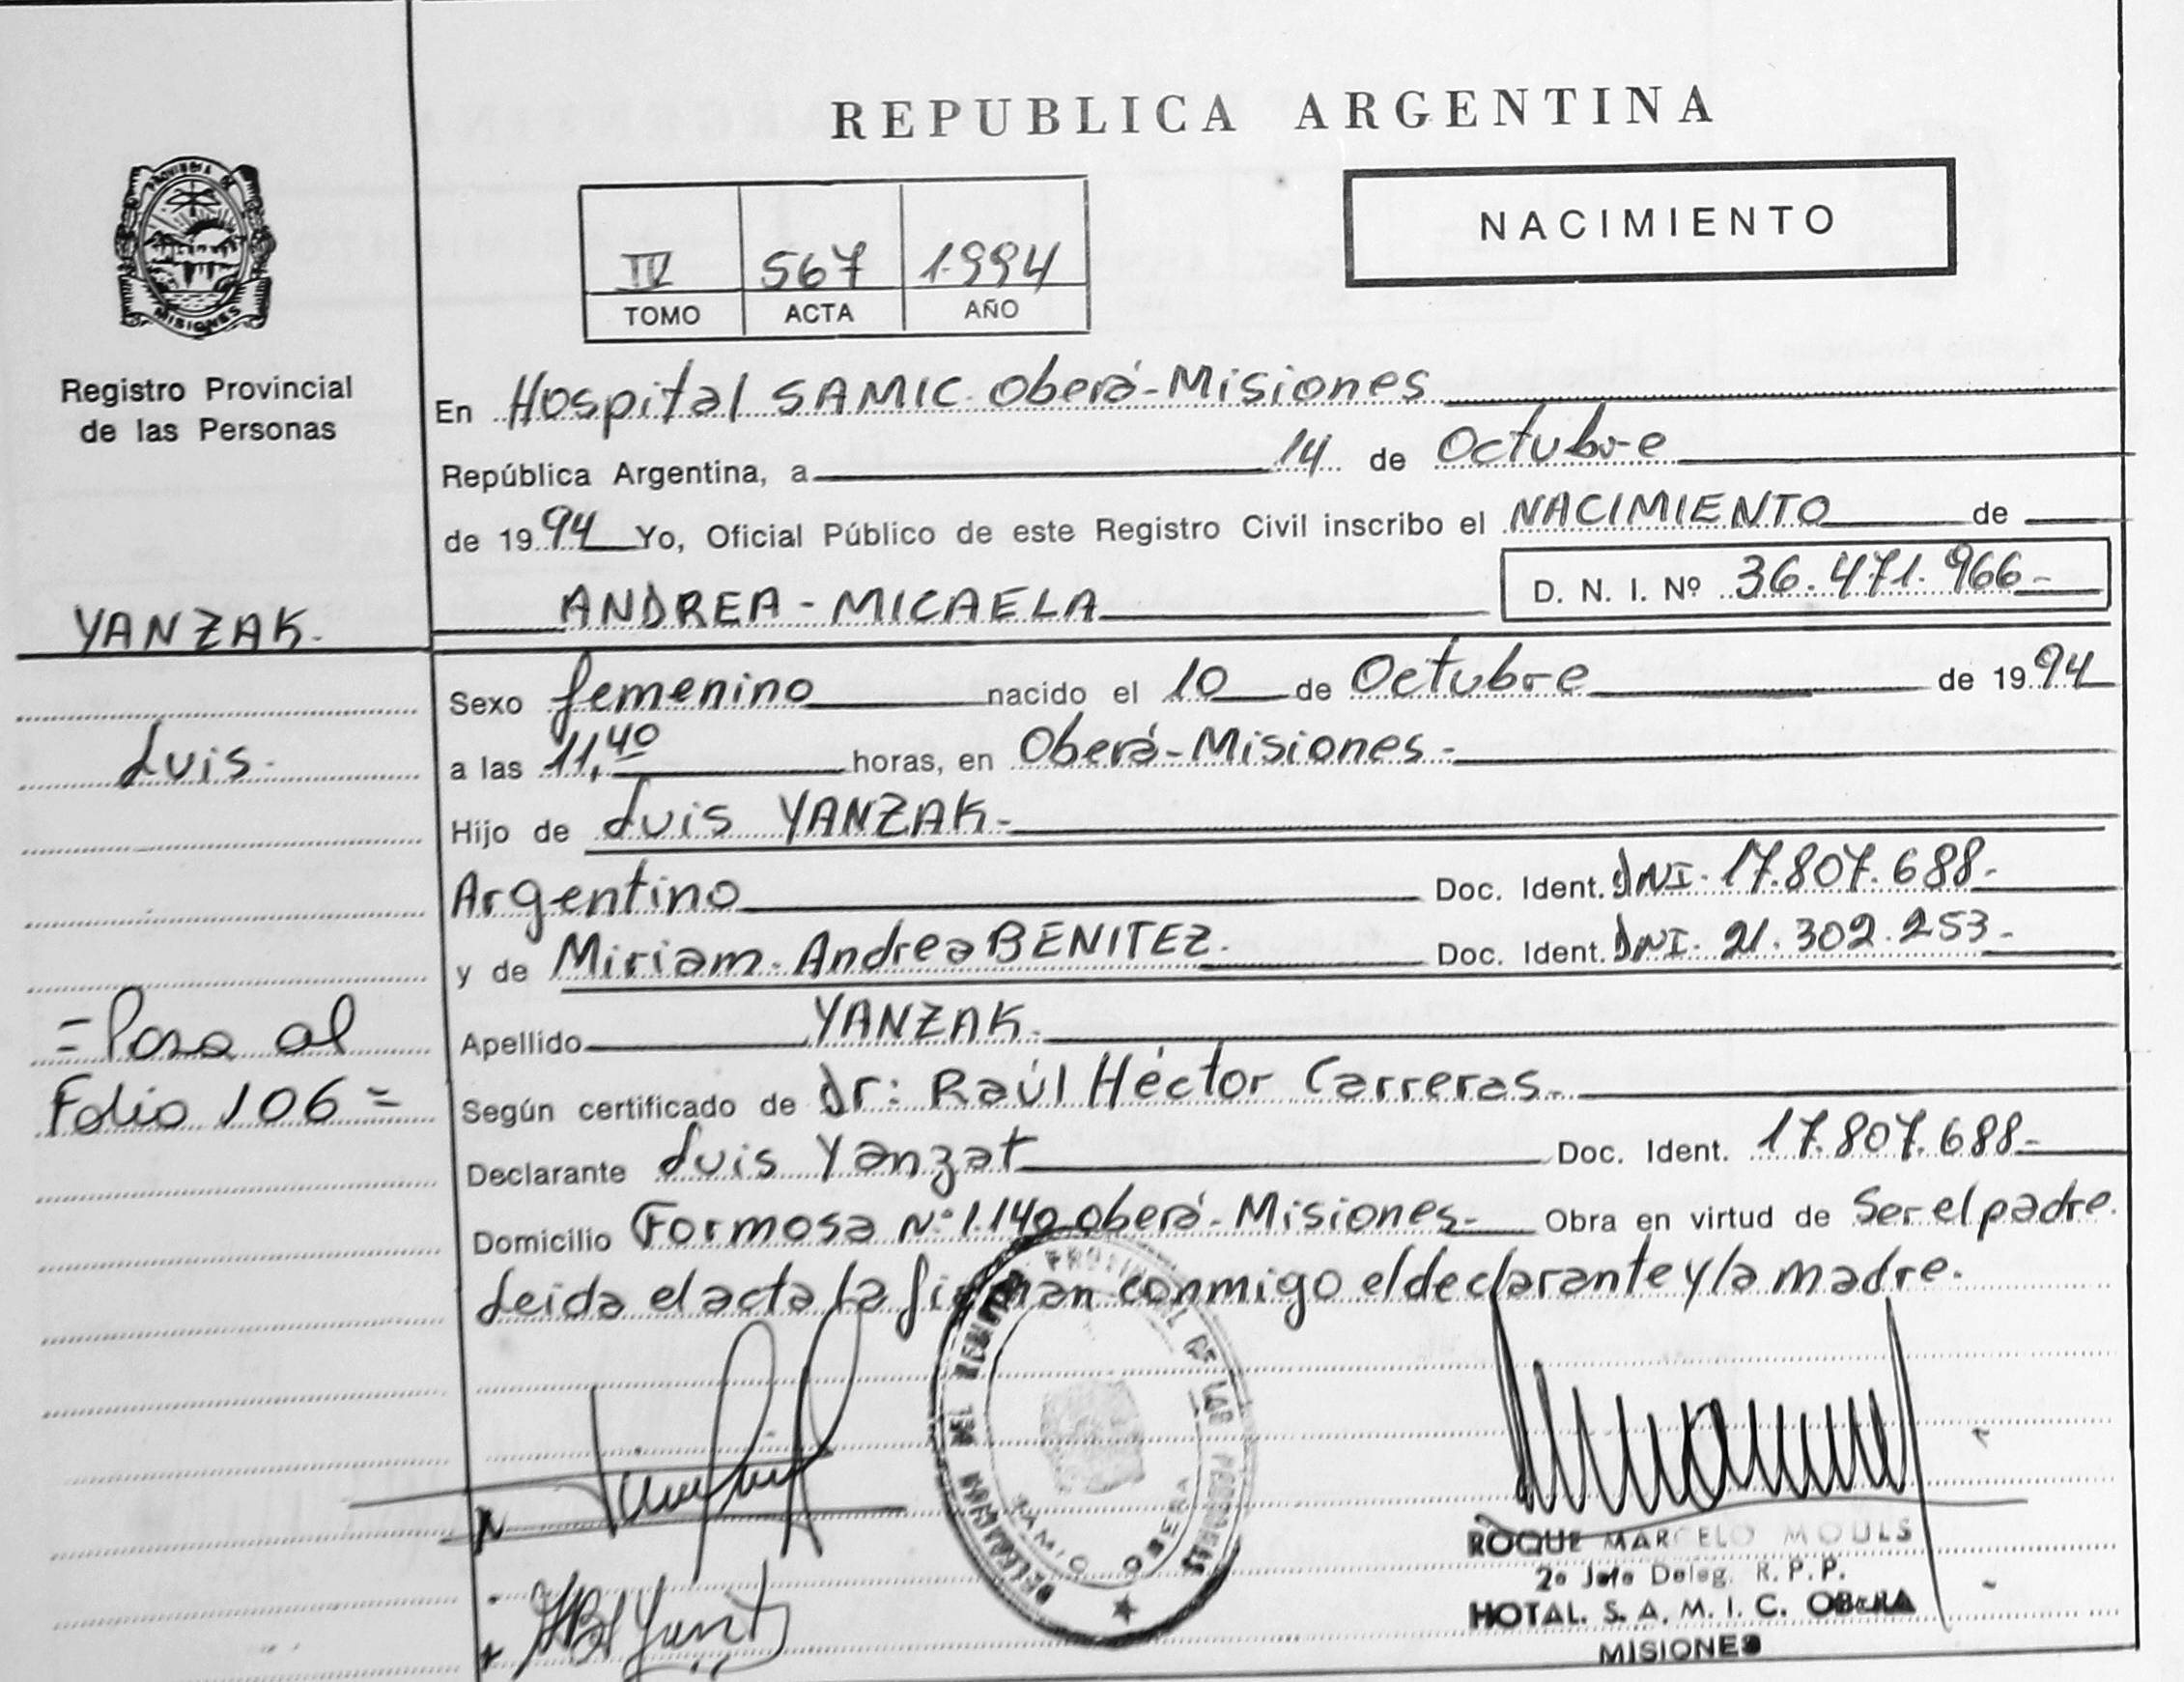 REPUBLICA ARGENTINA
NACIMIENTO
PROVINCIA DE
MISIONES
Registro Provincial
de las Personas
IV 567 1.994
TOMO ACTA AÑO
En Hospital SAMIC. Oberá-Misiones
República Argentina, a 14 de Octubre
de 1994 Yo, Oficial Público de este Registro Civil inscribo el NACIMIENTO de
ANDREA-MICAELA D. N. I. Nº 36.471.966-
YANZAK.
Sexo femenino nacido el 10 de Octubre de 1994
Luis-
a las 11,40 horas, en Oberá-Misiones-
Hijo de Luis YANZAK-
Argentino Doc. Ident. DNI-17.807.688-
y de Miriam-Andrea BENITEZ. Doc. Ident. DNI-21.302.253-
Apellido YANZAK.
=Pasa al
Folio 106=
Según certificado de Dr: Raúl Héctor Carreras-
Declarante Luis Yanzat Doc. Ident. 17.807.688-
Domicilio Formosa Nº 1.140 Oberá-Misiones- Obra en virtud de Ser el padre.
Leida el acta la firman conmigo el declarante y la madre.
DELEGACION DEL REGISTRO PROVINCIAL DE LAS PERSONAS
SAMIC OBERA
ROQUE MARCELO MOULS
2º Jefe Deleg. R. P. P.
HOTAL. S. A. M. I. C. OBERA
MISIONES